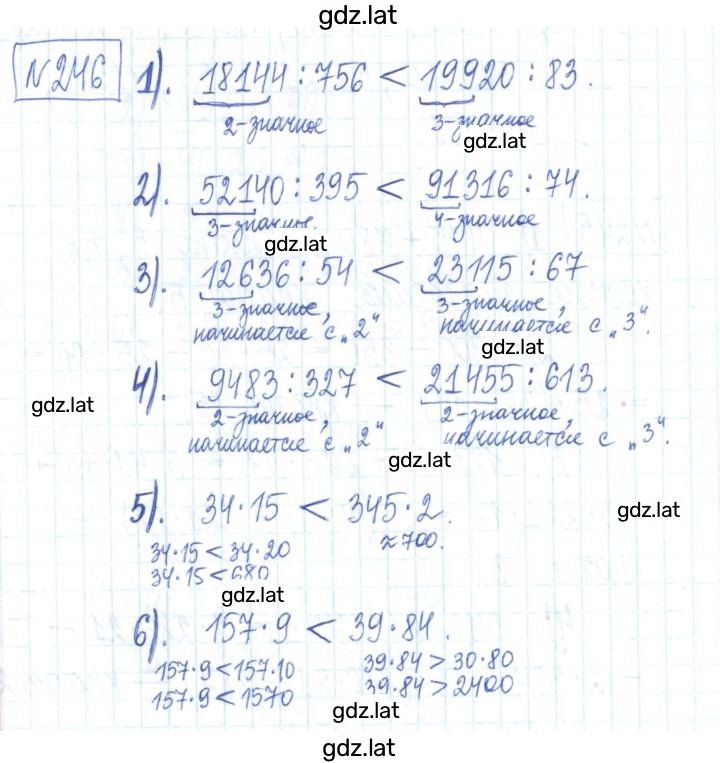 gdz.lat
№246 1). 18144 : 756 < 19920 : 83.
2-значное 3-значное
gdz.lat
2). 52140 : 395 < 91316 : 74.
3-значное. 4-значное
gdz.lat
3). 12636 : 54 < 23115 : 67
3-значное, 3-значное,
начинается с „2“ начинается с „3“.
gdz.lat
4). 9483 : 327 < 21455 : 613.
gdz.lat
2-значное, 2-значное,
начинается с „2“ начинается с „3“.
gdz.lat
5). 34·15 < 345·2.
gdz.lat
34·15 < 34·20 ≈700.
34·15 < 680
gdz.lat
6). 157·9 < 39·84.
157·9 < 157·10 39·84 > 30·80
157·9 < 1570 39·84 > 2400
gdz.lat
gdz.lat